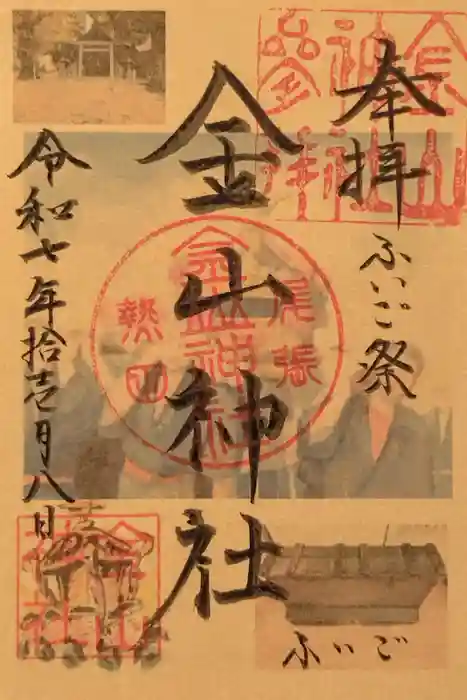 奉拝
ふいご祭
金山神社
令和七年拾壱月八日
尾張
熱田
金山神社
ふいご